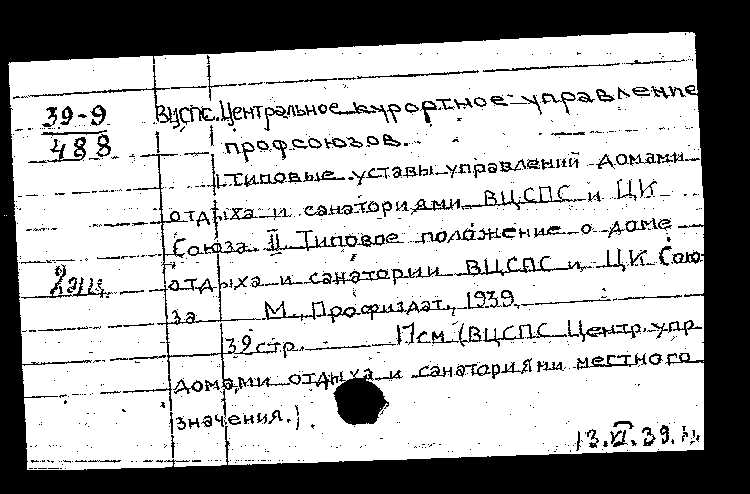 39-9
488
ВЦСПС. Центральное курортное управление
профсоюзов.
I. Типовые уставы управлений домами
отдыха и санаториями ВЦСПС и ЦК
Союза II Типовое положение о доме
отдыха и санатории ВЦСПС и ЦК Сою-
за М., Профиздат, 1939
39 стр. 17см (ВЦСПС Центр. упр
домами отдыха и санаториями местного
значения.).
13.VI.39.